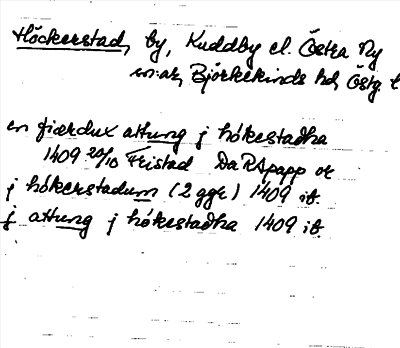 Höckerstad, by, Kuddby el. Östra Ny
sn:ar, Björkekinds hd, Östg. l
en fiærdux attung j hökestadha
1409 20/10 Fristad DaRApapp or
j hökerstadum (2 ggr) 1409 ib.
j attung j hökestadha 1409 ib.